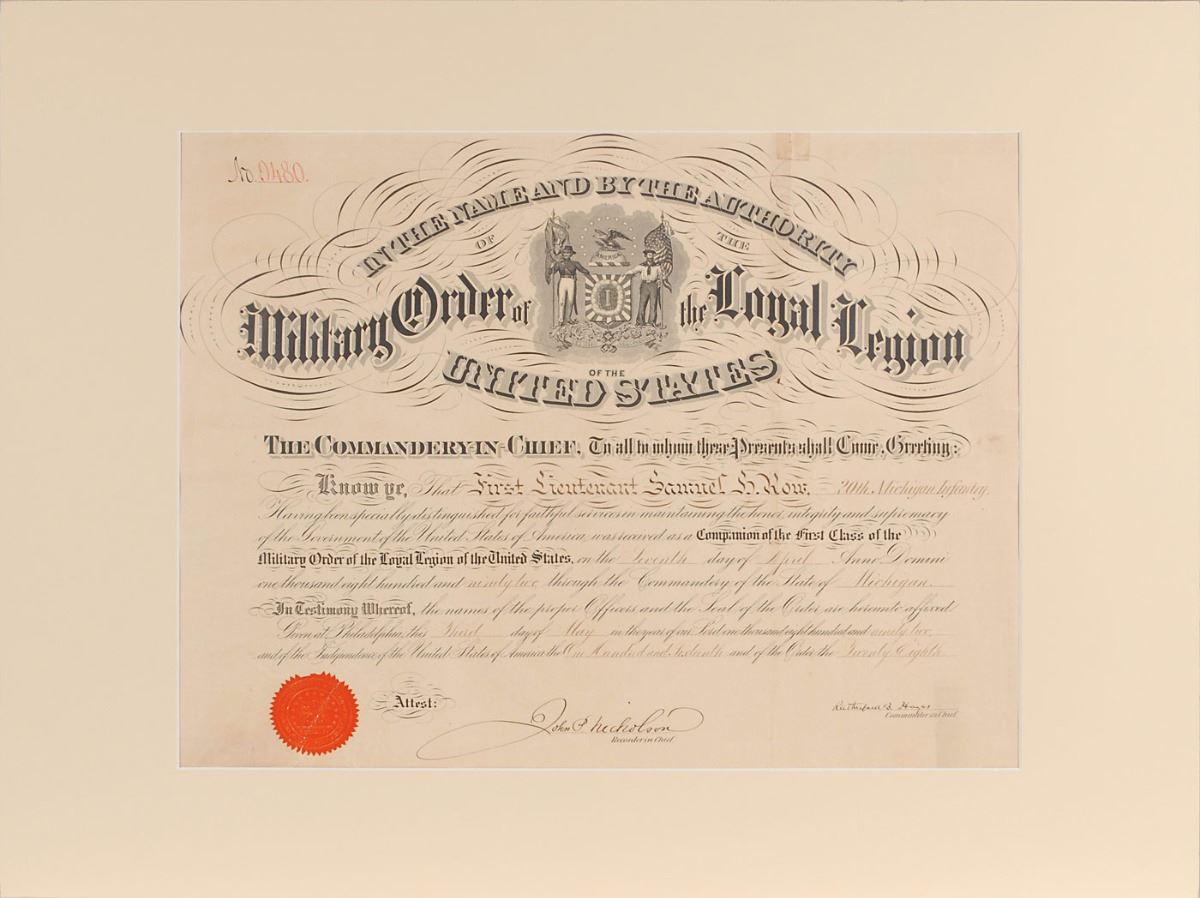 No. 9480.
IN THE NAME AND BY THE AUTHORITY
OF THE
AMERICA
Military Order of the Loyal Legion
1
OF THE
UNITED STATES
THE COMMANDERY-IN-CHIEF, To all to whom these Presents shall Come, Greeting:
Know ye, That First Lieutenant Samuel H. Row, 20th Michigan Infantry.
Having been specially distinguished for faithful services in maintaining the honor, integrity and supremacy
of the Government of the United States of America, was received as a Companion of the First Class of the
Military Order of the Loyal Legion of the United States, on the Seventh day of April Anno Domini
one thousand eight hundred and ninety two through the Commandery of the State of Michigan.
In Testimony Whereof, the names of the proper Officers and the Seal of the Order are hereunto affixed
Given at Philadelphia, this Third day of May in the year of our Lord one thousand eight hundred and ninety two,
and of the Independence of the United States of America the One Hundred and Sixteenth and of the Order the Twenty Eighth
Attest:
John P. Nicholson
Recorder in Chief.
Rutherford B. Hayes
Commander in Chief.